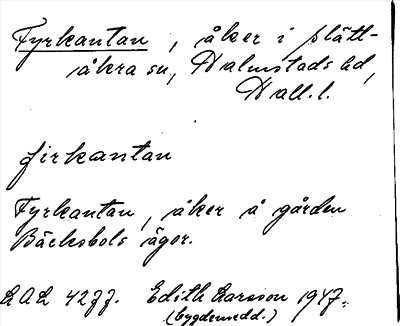 Fyrkantan, åker i Slätt-
åkra sn, Halmstads hd,
Hall. l.
firkantan
Fyrkantan, åker å gården
Bäcksbols ägor.
LAL 4277. Edith Larsson 1947.
(bygdemedd.)